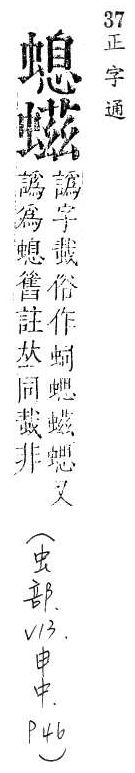 37 正字通
螅螆
譌字蛓俗作蚵螅螆螅又
譌爲螅舊註𠀤同蛓非
(虫部. V13. 申中. P46)